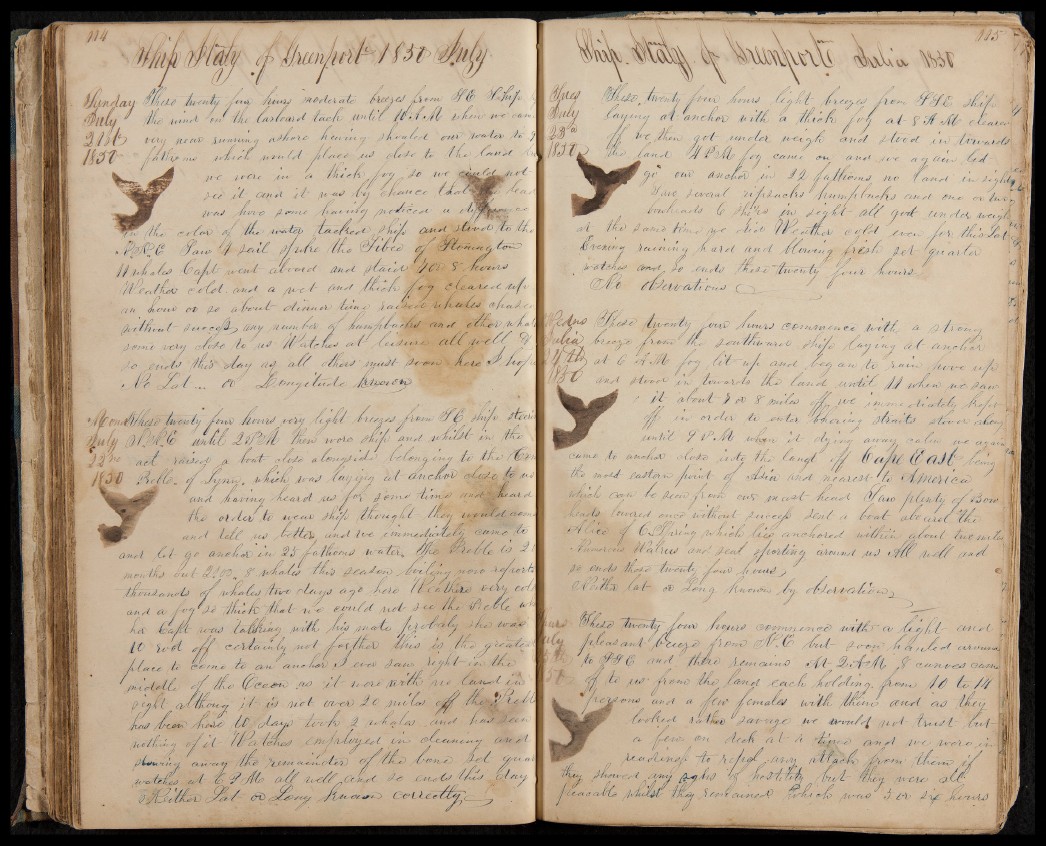 114
Ship Italy of Greenport 1850 July
Sunday These twenty four hours moderate breezes from
July the wind on the larboard tack until 10 A.M when we came
21st very near running ashore having shoaled our water to
1850 fathoms which would place us close to the land
we were in a thick fog so we could not
see it and it was by chance that
was hove some having noticed a
in the color of the water tacked ship and stood to the
N.N.E Saw 4 sail spoke the Tiber of Stonington
11 whales Capt went aboard and staid 7 or 8 hours
Weather cold and a wet and thick fog cleared up
an hour or so about dinner time raised whales chased
without success any number of humpbacks and other whales
some very close to us Watches at leisure all well
so ends this day as all others must soon here I hope
No Lat or Longitude known
Mond These twenty four hours very light breezes from S.E. ship
July N.N.E until 2 P.M then wore ship and whilst in the
22nd act raised a boat close alongside belonging to the
1850 Preble of Lynn. which was laying at anchor close to us
and having heard us for some time and heard
the order to wear ship thought they would come
and tell us better and we immediately came to
and let go anchor in 23 fathoms water. The Preble is
months out 8 whales this season boiling now reports
thousands of whales two days ago here Weather very cold
and a fog so thick that we could not see the Preble
her Capt was talking with his mate probably she was
rod off certainly not farther This is the greatest
place to come to an anchor I ever saw right in the
middle of the Ocean as it were with no land in
sight although it is not over 20 miles off the Preble
has been here 10 days took 2 whales and has seen
nothing of it Watches employed in cleaning and
stowing away the remainder of the bone Set
watches at 6 P.M all well and so ends this day
Neither Lat or Long known correctly
115
Ship Italy of Greenport Julia 1850
Tues These twenty four hours light breezes from S.S.E ship
July laying at anchor with a thick fog at 8 A M cleared
23rd off we then got under weigh and stood in towards
1850 the land 4 P.M fog came on and we again let
go our anchor in 22 fathoms no land in sight
Saw several ripsacks humpbacks and one or two
bowheads 6 ships in sight all got under weigh
at the same time we did Weather cold even for this Lat
Evening raining hard and blowing fresh set quarter
watches and so ends these twenty four hours
No observations
Wedns These twenty four hours commence with a strong
Julia breeze from the southward ship laying at anchor
24th at 6 A.M fog lit up and began to rain hove up
1850 and stood in towards the land until 11 when we saw
it about 7 or 8 miles off we immediately kept
off in order to enter Bhering Straits stood along
until 9 P.M when it dying away calm we again
came to anchor close into the land off Cape East being
the most eastern point of Asia and nearest to America
which can be seen from our mast head Saw plenty of Bow
heads lowered once without success sent a boat aboard the
Alice of C. Spring which lies anchored within about two miles
Numerous Walrus and seal sporting around us All well and
so ends these twenty four hours
Neither lat or Long known by observations
Thurs These twenty four hours commence with a light and
July pleasant breeze from N.E but soon hauled around
to S.S.E and there remains At 2 A.M 8 canoes came
off to us from the land each holding from 10 to 14
persons and a few females with them and as they
looked rather savage we would not trust but
a few on deck at a time and we were in
readiness to repel any attack from them if
they showed any signs of hostility but they were all
peacable whilst they remained which was 5 or six hours